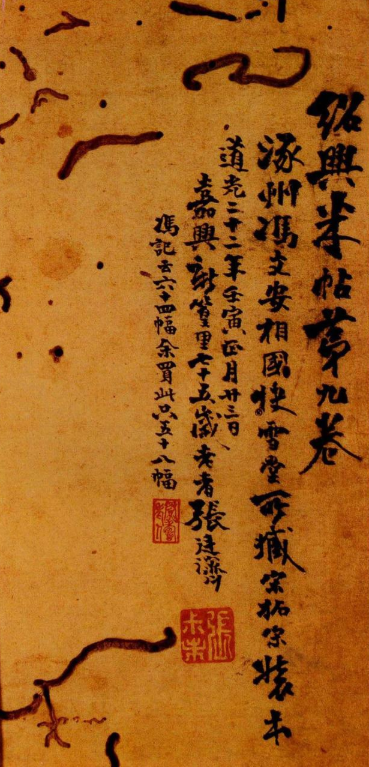 紹興米帖第九卷
涿州馮文安相國快雪堂所藏宋拓宋裝本
道光二十二年壬寅正月廿三日
嘉興新篁里七十五歲老者張廷濟
馮記云六十四幅余買此只五十八幅
張叔未